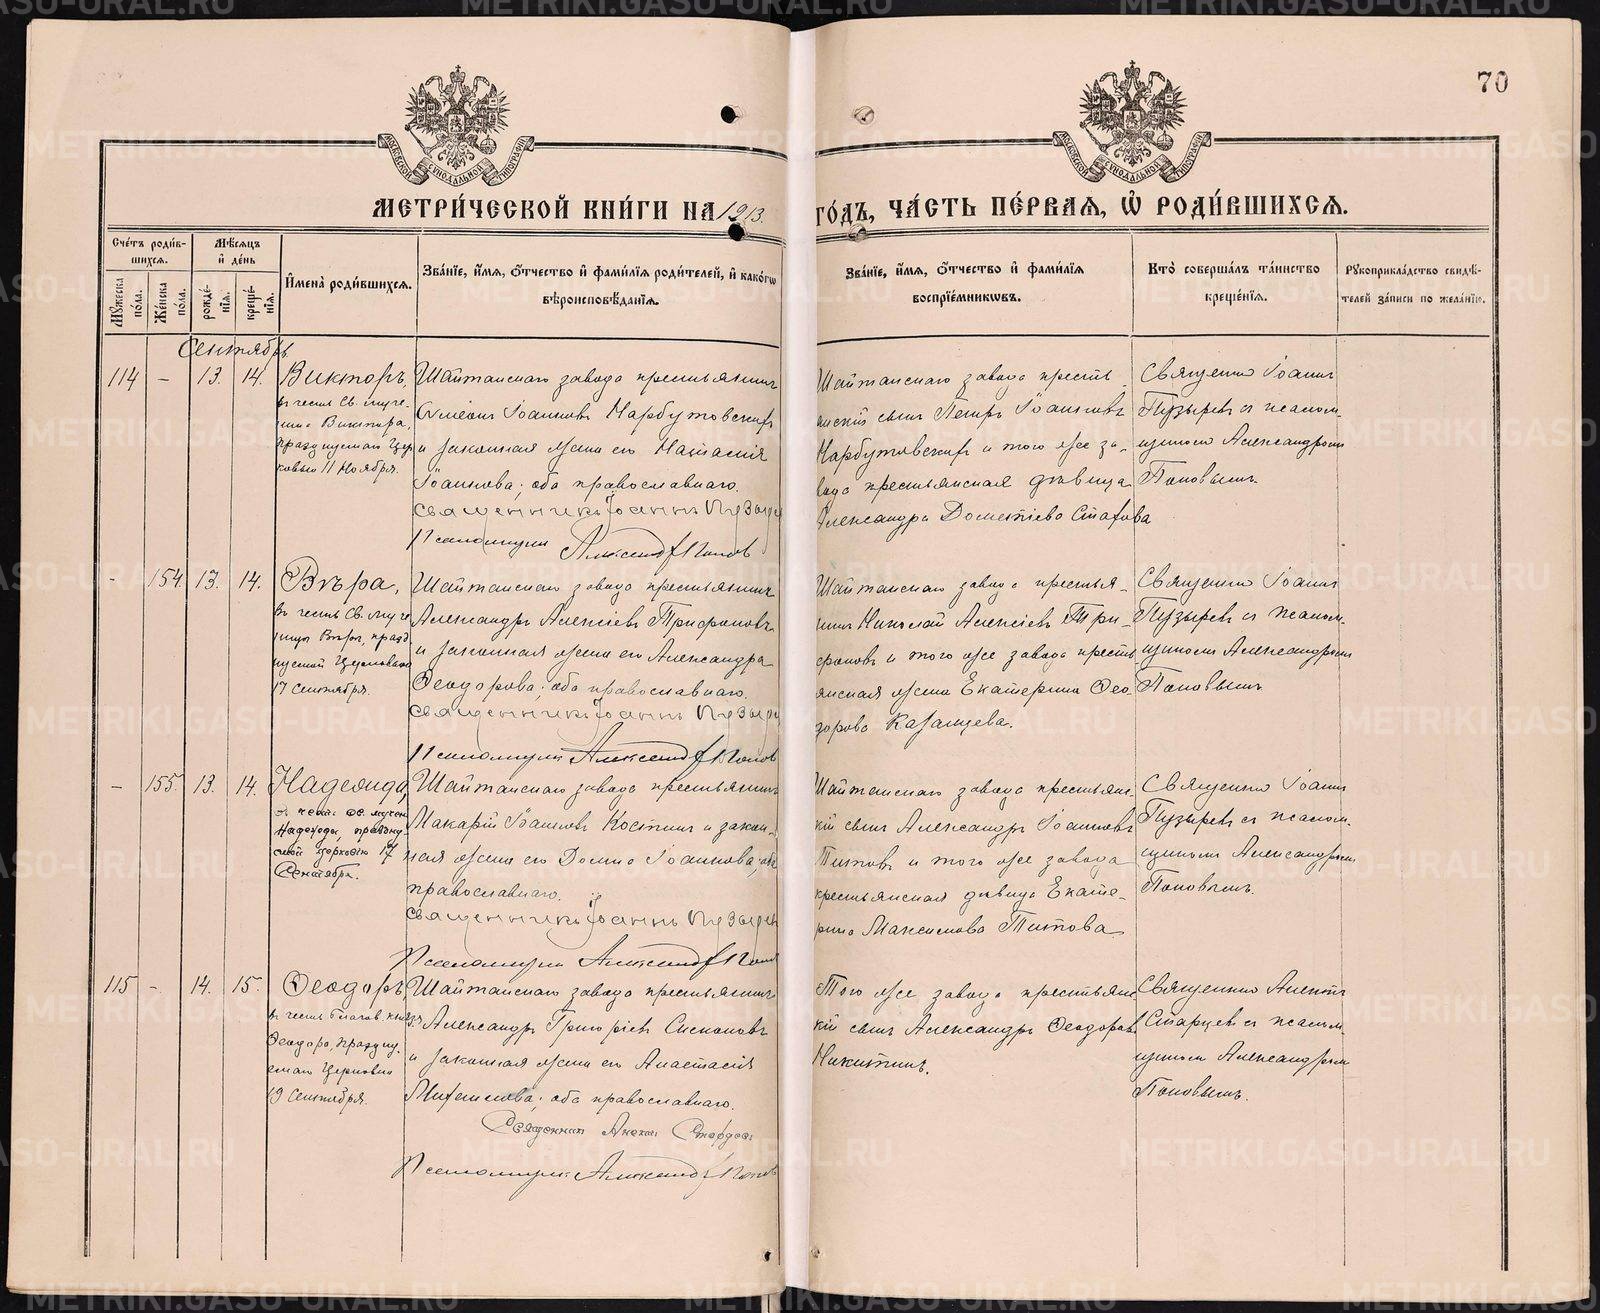 70
МОСКОВСКОЙ СУНОДАЛЬНОЙ ТИПОГРАФІИ
МОСКОВСКОЙ СУНОДАЛЬНОЙ ТИПОГРАФІИ
МЕТРИ́ЧЕСКОЙ КНИ́ГИ НА 1913 ГО́ДЪ, ЧА́СТЬ ПЕ́РВАЯ, Ѡ РОДИ́ВШИХСЯ.
Сче́тъ роди́в-
шихся.
Мѣ́сяцъ
и де́нь
Мꙋ́жеска по́ла.
Же́нска по́ла.
рожде́-
нїя.
креще́-
нїя.
И҆мена̀ роди́вшихся.
Зва́нїе, и҆́мя, ѻ҆́тчество и҆ фами́лїя роди́телей, и҆ како́гѡ
вѣроисповѣ́данїя.
Зва́нїе, и҆́мя, ѻ҆́тчество и҆ фами́лїя
воспрїе́мникѡвъ.
Кто̀ соверша́лъ та́инство
креще́нїя.
Рꙋкоприкла́дство свидѣ́-
телей за́писи по жела́нїю.
Сентябрь
114 - 13. 14.
Викторъ,
въ честь Св. муче-
ника Виктора,
празднуемаго Цер
ковью 11 Ноября.
Шайтанскаго завода крестьянинъ
Симеонъ Іоанновъ Нарбутовскихъ
и законная жена его
Іоаннова; оба православнаго.
Священникъ Іоаннъ Пузырев
Псаломщикъ Александръ Попов
Шайтанскаго завода кресть-
янскій сынъ Петръ Іоанновъ
Нарбутовскихъ и того же за-
вода крестьянская дѣвица
Александра Дометіева Стахова
Священникъ Іоаннъ
Пузыревъ съ псалом-
щикомъ Александромъ
Поповымъ.
- 154 13. 14.
Вѣра,
въ честь Св. муче
ницы Вѣры, празд
нуемой Церковью
17 Сентября.
Шайтанскаго завода крестьянинъ
Александръ Алексіевъ Трифоновъ
и законная жена его Александра
Ѳеодорова; оба православнаго.
Священникъ Іоаннъ Пузырев
Псаломщикъ Александръ Попов
Шайтанскаго завода крестья-
нинъ Николай Алексіевъ Три-
фоновъ и того же завода кресть
янская жена Екатерина Ѳео-
дорова Казанцева.
Священникъ Іоаннъ
Пузыревъ съ псалом-
щикомъ Александромъ
Поповымъ.
- 155. 13. 14.
Надежда,
въ честь св. мучен
Надежды, праздну
емой церковію 17
Сентября.
Шайтанскаго завода крестьянинъ
Макарій Іоанновъ Костинъ и закон-
ная жена его Домна Іоаннова; оба
православнаго.
Священникъ Іоаннъ Пузырев
Псаломщикъ Александръ Попов
Шайтанскаго завода крестьянс
кій сынъ Александръ Іоанновъ
Титовъ и того же завода
крестьянская дѣвица Екате-
рина Максимова Титова
Священникъ Іоаннъ
Пузыревъ съ псалом-
щикомъ Александромъ
Поповымъ.
115 - 14. 15.
Ѳеодоръ,
въ честь благов. князя
Ѳеодора, праздну-
емаго Церковью
19 Сентября.
Шайтанскаго завода крестьянинъ
Александръ Григоріевъ
и законная жена его Анастасія
оба православнаго.
Священникъ Алексій Старцевъ
Псаломщикъ Александръ Попов
Того же завода крестьянс
кій сынъ Александръ Ѳеодоровъ
Никитинъ.
Священникъ Алексій
Старцевъ съ псалом-
щикомъ Александромъ
Поповымъ.
METRIKI.GASO-URAL.RU